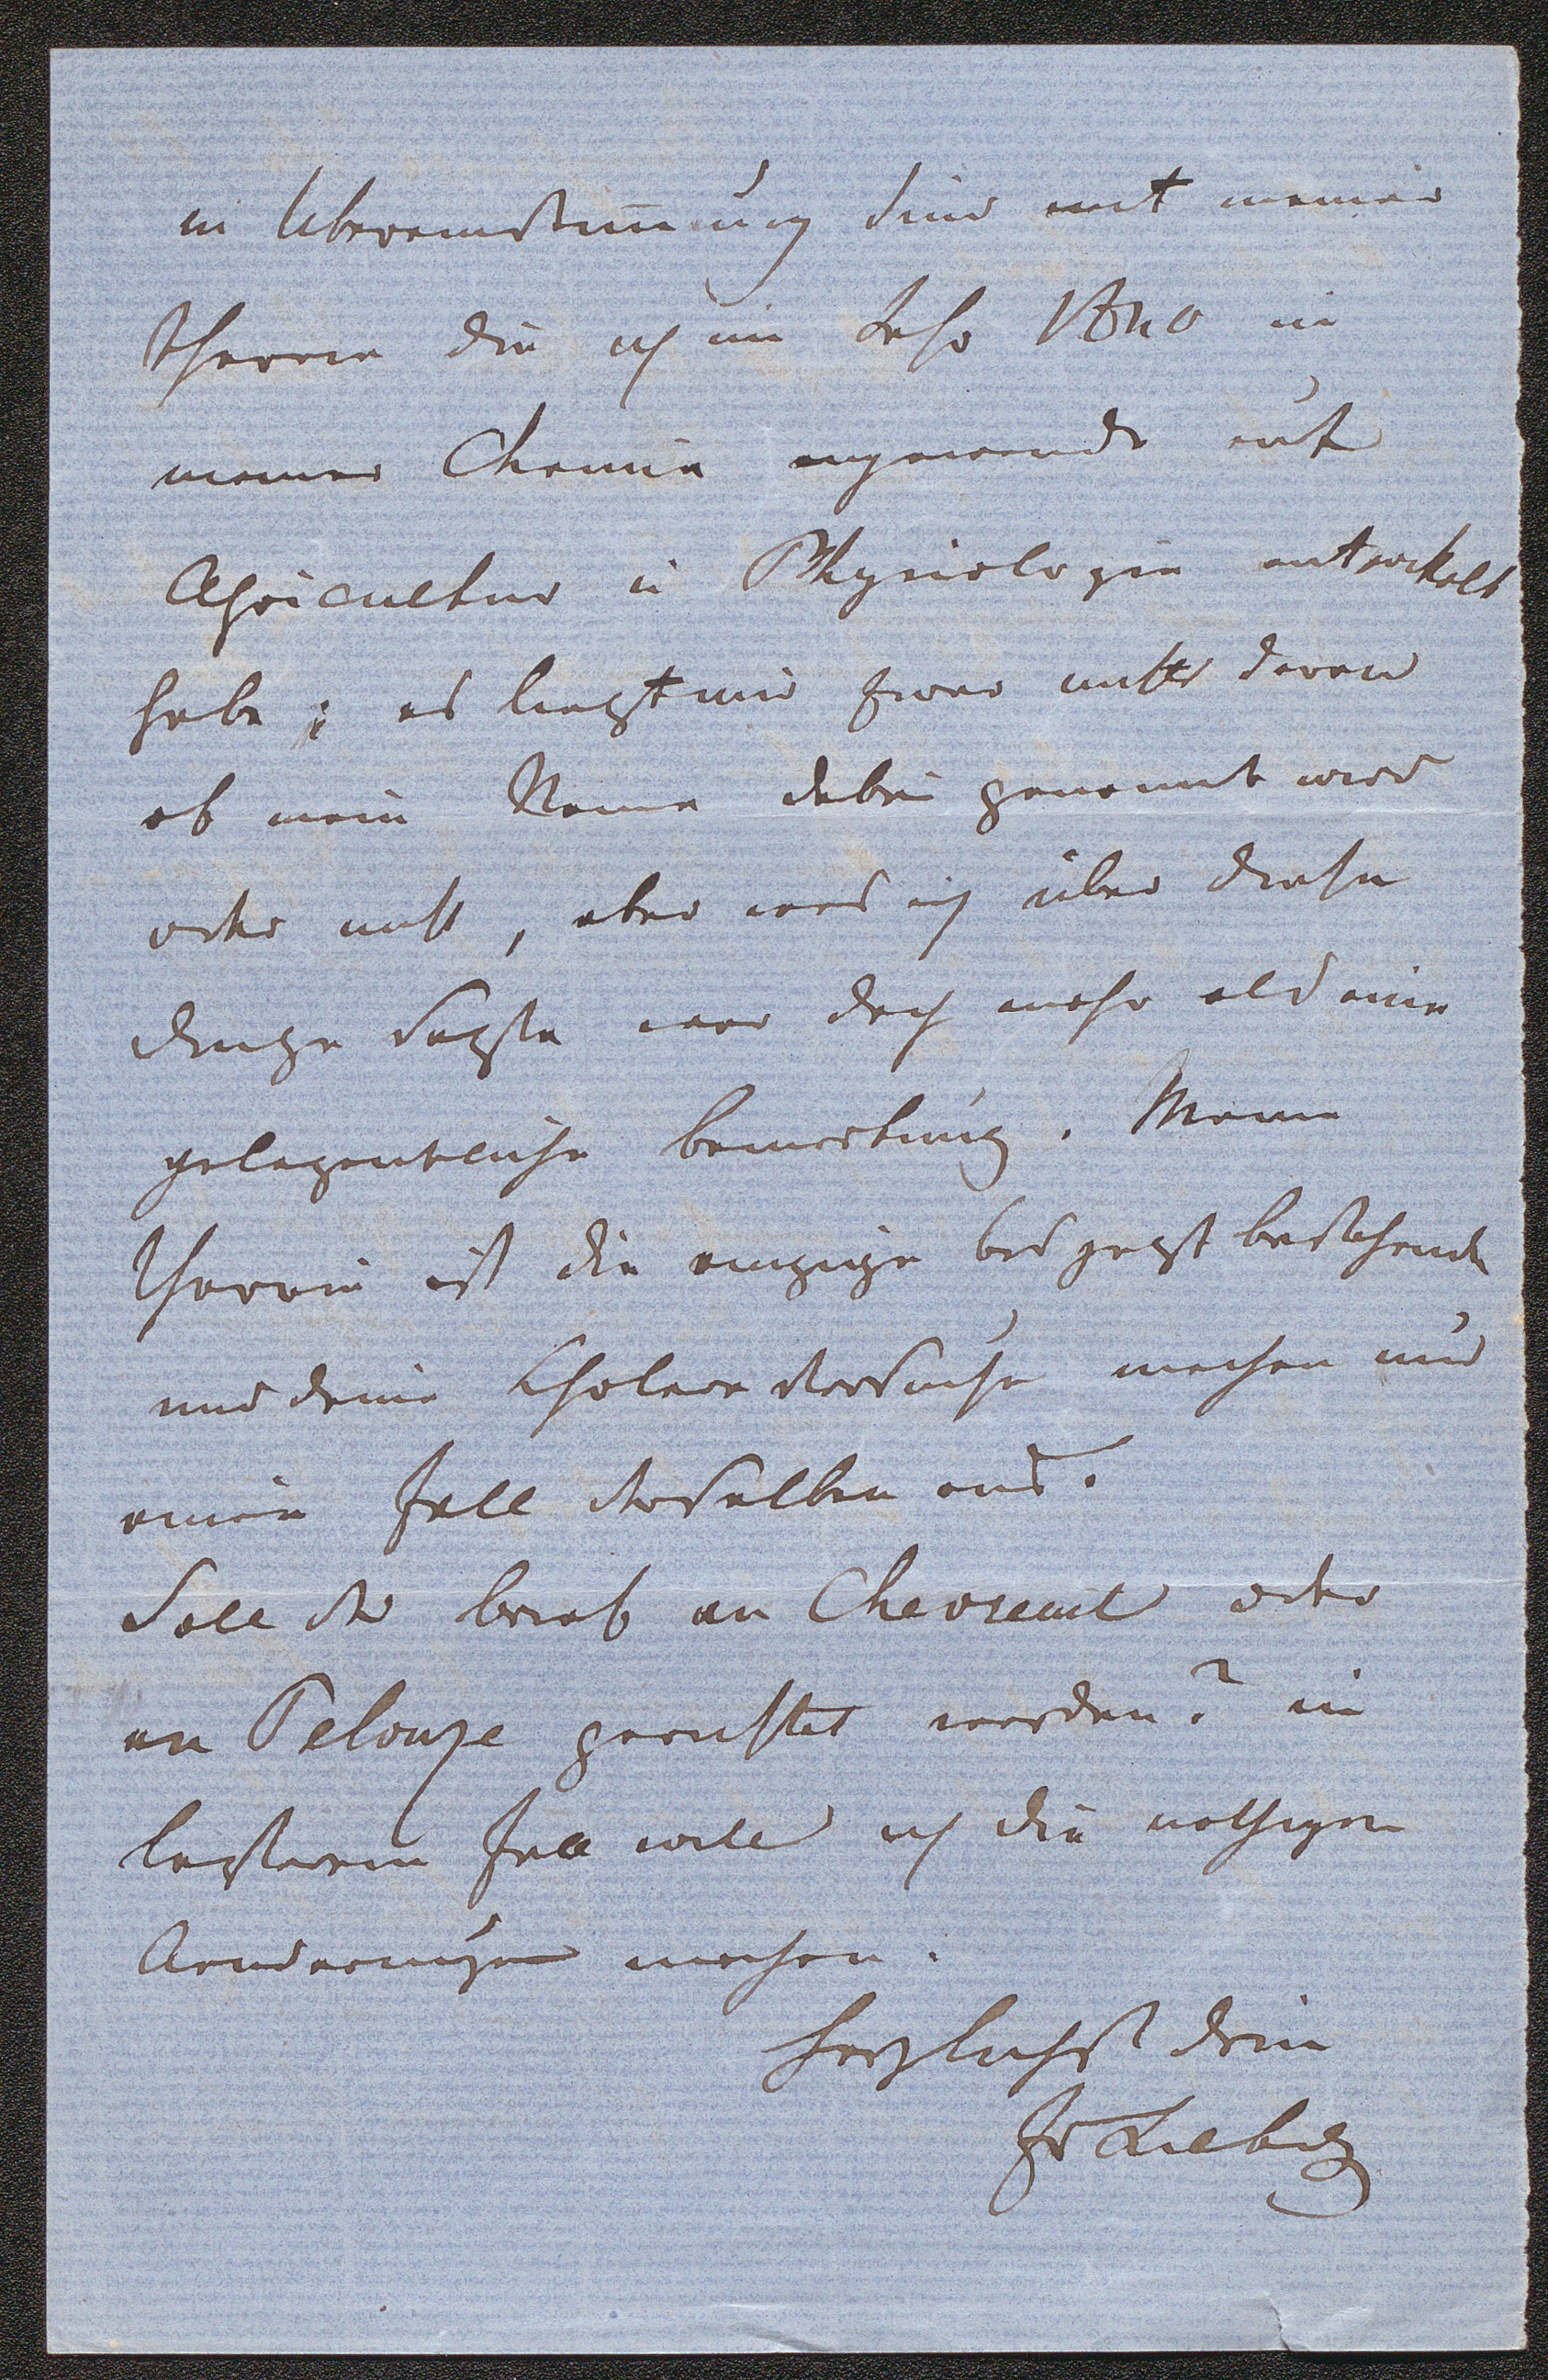 in Ubereinstimmung sind mit meiner
Theorie die ich im Jahr 1840 in
meiner Chemie angewandt auf
Agricultur u Physiologie entwickelt
habe; es liegt mir zwar nichts daran
ob mein Name dabei genannt wird
oder nicht, aber was ich über diese
Dinge sagte war doch mehr als eine
gelegentliche Bemerkung. Meine
Theorie ist die einzige bis jetzt bestehende
und deine Cholera Versuche machen nur
einen Fall derselben aus.
Soll der Brief an Chevreuil oder
an Pelouze gerichtet werden? im
letzteren Fall will ich die nothigen
Aenderungen machen.
herzlichst dein
Jv Liebig